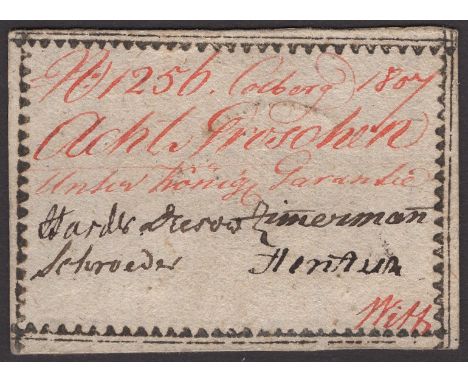 No 1256. Colberg 1807
Acht Groschen
Unter Königl Garantie
Harder Dresow Zimmermañ
Schroeder Hentsch
Witt